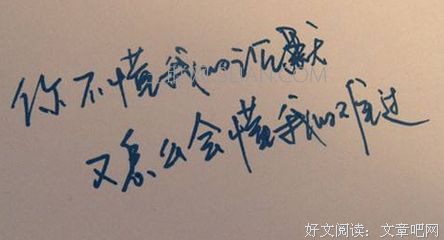 你不懂我的沉默
又怎么会懂我的难过
好文阅读：文章吧网